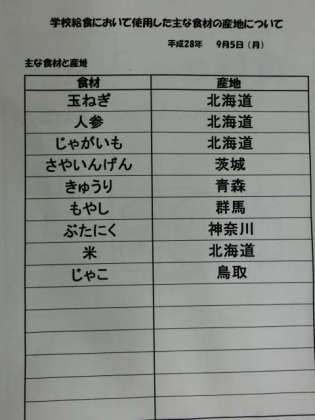 学校給食において使用した主な食材の産地について
平成28年 9月5日(月)
主な食材と産地
食材 産地
玉ねぎ 北海道
人参 北海道
じゃがいも 北海道
さやいんげん 茨城
きゅうり 青森
もやし 群馬
ぶたにく 神奈川
米 北海道
じゃこ 鳥取